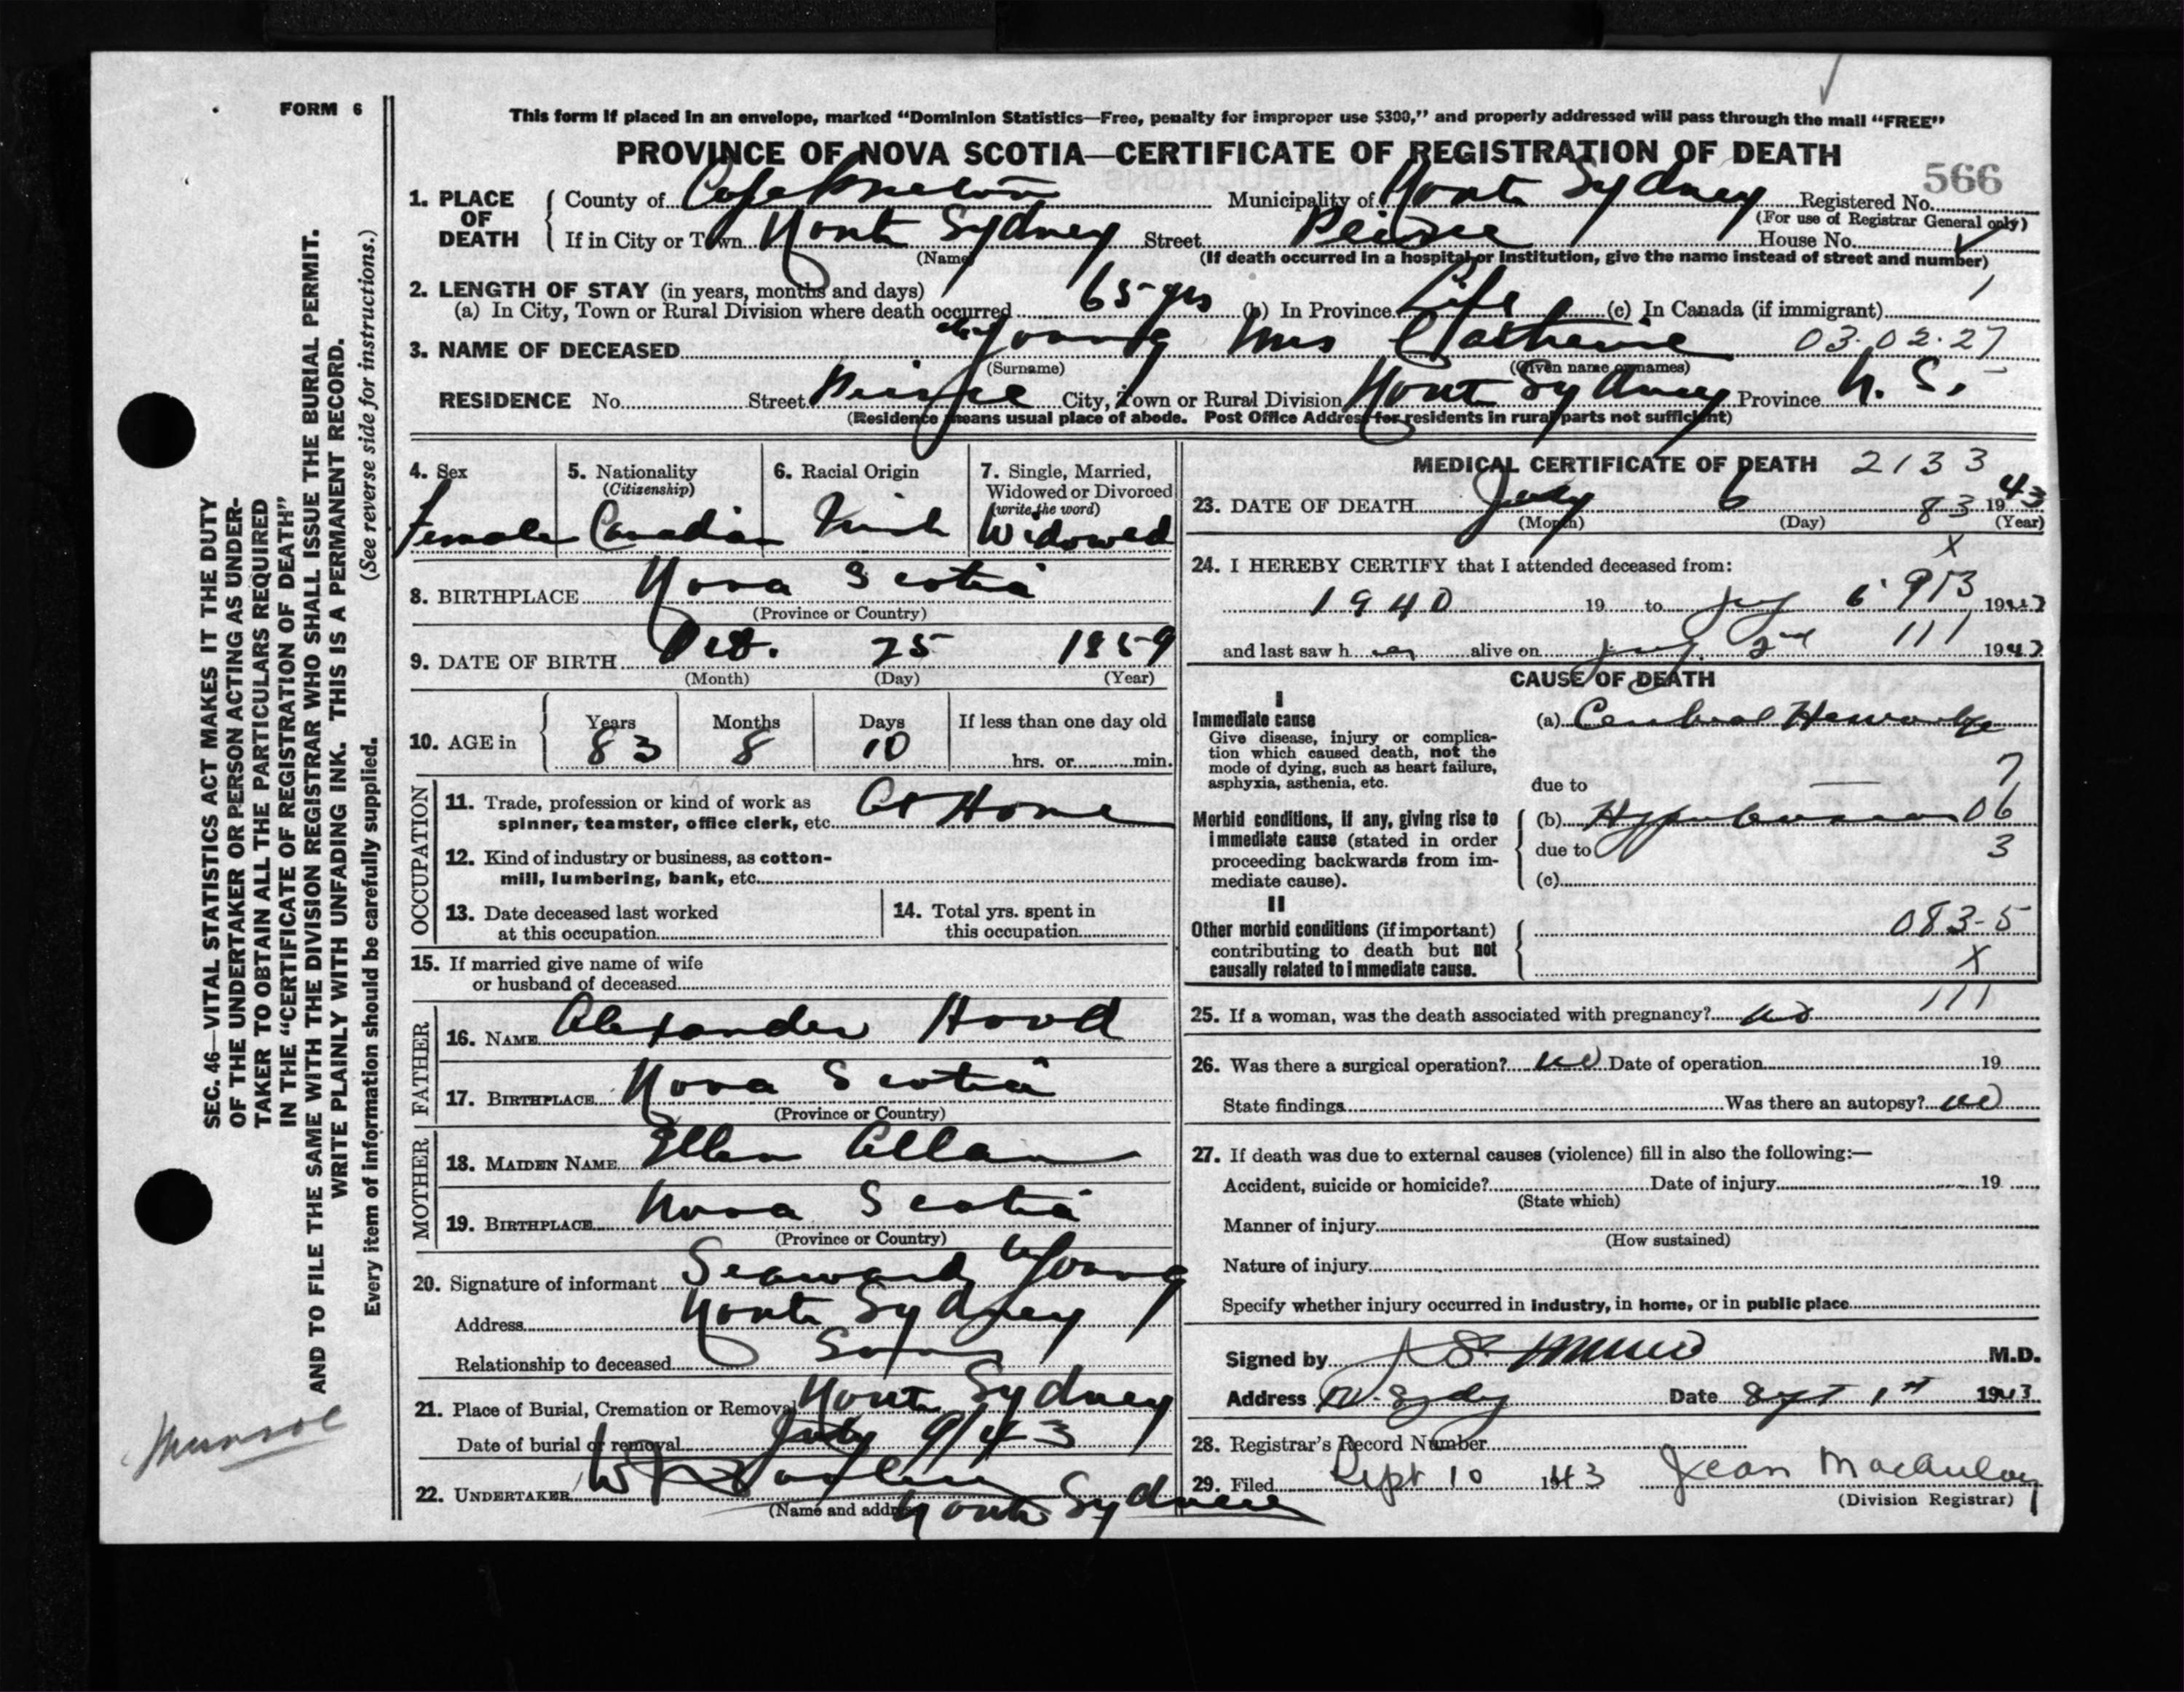 FORM 6
This form if placed in an envelope, marked “Dominion Statistics—Free, penalty for improper use $300,” and properly addressed will pass through the mail “FREE”
PROVINCE OF NOVA SCOTIA—CERTIFICATE OF REGISTRATION OF DEATH
566
1. PLACE OF DEATH County of Cape Breton Municipality of North Sydney Registered No.
(For use of Registrar General only)
If in City or Town North Sydney Street Peirce House No.
(Name) (If death occurred in a hospital or institution, give the name instead of street and number)
2. LENGTH OF STAY (in years, months and days)
(a) In City, Town or Rural Division where death occurred 65 yrs (b) In Province Life (c) In Canada (if immigrant) 1
3. NAME OF DECEASED Young Mrs Catherine 03.02.27
(Surname) (Given name or names)
RESIDENCE No. Street Peirce City, Town or Rural Division North Sydney Province N. S.
(Residence means usual place of abode. Post Office Address for residents in rural parts not sufficient)
4. Sex 5. Nationality (Citizenship) 6. Racial Origin 7. Single, Married, Widowed or Divorced (write the word)
Female Canadian Irish Widowed
8. BIRTHPLACE Nova Scotia
(Province or Country)
9. DATE OF BIRTH Oct. 25 1859
(Month) (Day) (Year)
10. AGE in Years Months Days If less than one day old
83 8 10 hrs. or min.
OCCUPATION
11. Trade, profession or kind of work as spinner, teamster, office clerk, etc. At Home
12. Kind of industry or business, as cotton-mill, lumbering, bank, etc.
13. Date deceased last worked at this occupation
14. Total yrs. spent in this occupation
15. If married give name of wife or husband of deceased
FATHER
16. NAME Alexander Hood
17. BIRTHPLACE Nova Scotia
(Province or Country)
MOTHER
18. MAIDEN NAME Ellen Allan
19. BIRTHPLACE Nova Scotia
(Province or Country)
20. Signature of informant Seaward Young
Address North Sydney
Relationship to deceased Son
21. Place of Burial, Cremation or Removal North Sydney
Date of burial or removal July 9/43
22. UNDERTAKER
(Name and address) North Sydney
MEDICAL CERTIFICATE OF DEATH 2133
23. DATE OF DEATH July 6 83 1943
(Month) (Day) (Year)
X
24. I HEREBY CERTIFY that I attended deceased from:
1940 19 to July 6 913 1943
and last saw her alive on July 2nd 111 1943
CAUSE OF DEATH
I
Immediate cause
Give disease, injury or complication which caused death, not the mode of dying, such as heart failure, asphyxia, asthenia, etc.
(a) Cerebral Hemorrhage
due to 7
Morbid conditions, if any, giving rise to immediate cause (stated in order proceeding backwards from immediate cause).
(b) Hypertension 06
due to 3
(c)
II
Other morbid conditions (if important) contributing to death but not causally related to immediate cause.
083-5
X
111
25. If a woman, was the death associated with pregnancy? no
26. Was there a surgical operation? no Date of operation 19
State findings Was there an autopsy? no
27. If death was due to external causes (violence) fill in also the following:—
Accident, suicide or homicide? Date of injury 19
(State which)
Manner of injury
(How sustained)
Nature of injury
Specify whether injury occurred in industry, in home, or in public place
Signed by M.D.
Address N. Sydney Date Sept 1st 1943
28. Registrar's Record Number
29. Filed Sept 10 1943 Jean MacAulay
(Division Registrar)
SEC. 46—VITAL STATISTICS ACT MAKES IT THE DUTY
OF THE UNDERTAKER OR PERSON ACTING AS UNDER-
TAKER TO OBTAIN ALL THE PARTICULARS REQUIRED
IN THE “CERTIFICATE OF REGISTRATION OF DEATH”
AND TO FILE THE SAME WITH THE DIVISION REGISTRAR WHO SHALL ISSUE THE BURIAL PERMIT.
WRITE PLAINLY WITH UNFADING INK. THIS IS A PERMANENT RECORD.
(See reverse side for instructions.)
Every item of information should be carefully supplied.